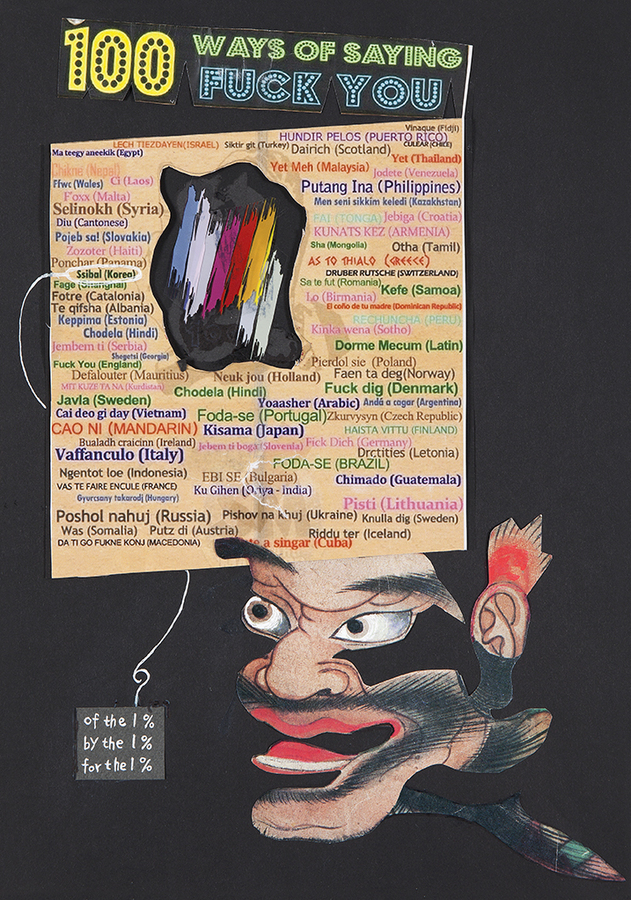 100 WAYS OF SAYING
FUCK YOU
Vinaque (Fidji)
HUNDIR PELOS (PUERTO RICO)
LECH TIEZDAYEN(ISRAEL) Siktir git (Turkey) Dairich (Scotland) CULEAR (CHILE)
Ma teegy aneekik (Egypt) Yet (Thailand)
Chikne (Nepal) Yet Meh (Malaysia) Jodete (Venezuela)
Ffwc (Wales) Ci (Laos) Putang Ina (Philippines)
F'oxx (Malta) Men seni sikkim keledi (Kazakhstan)
Selinokh (Syria) FAI (TONGA) Jebiga (Croatia)
Diu (Cantonese) KUNATS KEZ (ARMENIA)
Pojeb sa! (Slovakia) Sha (Mongolia) Otha (Tamil)
Zozoter (Haiti) AS TO THIALO (GREECE)
Ponchar (Panama) DRUBER RUTSCHE (SWITZERLAND)
Ssibal (Korea) Sa te fut (Romania)
Fage (Shanghai) Kefe (Samoa)
Fotre (Catalonia) Lo (Birmania)
Te qifsha (Albania) El coño de tu madre (Dominican Republic)
Keppima (Estonia) RECHUNCHA (PERU)
Chodela (Hindi) Kinka wena (Sotho)
Jembem ti (Serbia) Dorme Mecum (Latin)
Shegetsi (Georgia) Pierdol sie (Poland)
Fuck You (England) Faen ta deg(Norway)
Defalouter (Mauritius) Neuk jou (Holland)
MIT KUZE TA NA (Kurdistan) Chodela (Hindi) Fuck dig (Denmark)
Javla (Sweden) Yoaasher (Arabic) Andá a cagar (Argentina)
Cai deo gi day (Vietnam) Foda-se (Portugal) Zkurvysyn (Czech Republic)
CAO NI (MANDARIN) Kisama (Japan) HAISTA VITTU (FINLAND)
Bualadh craicinn (Ireland) Jebem ti boga (Slovenia) Fick Dich (Germany)
Vaffanculo (Italy) Drctities (Letonia)
FODA-SE (BRAZIL)
Ngentot loe (Indonesia) EBI SE (Bulgaria) Chimado (Guatemala)
VAS TE FAIRE ENCULE (FRANCE) Ku Gihen (Oriya - india)
Gyurcsany takarodj (Hungary) Pisti (Lithuania)
Poshol nahuj (Russia) Pishov na khuj (Ukraine) Knulla dig (Sweden)
Was (Somalia) Putz di (Austria) Riddu ter (Iceland)
DA TI GO FUKNE KONJ (MACEDONIA) a singar (Cuba)
of the 1%
by the 1%
for the 1%